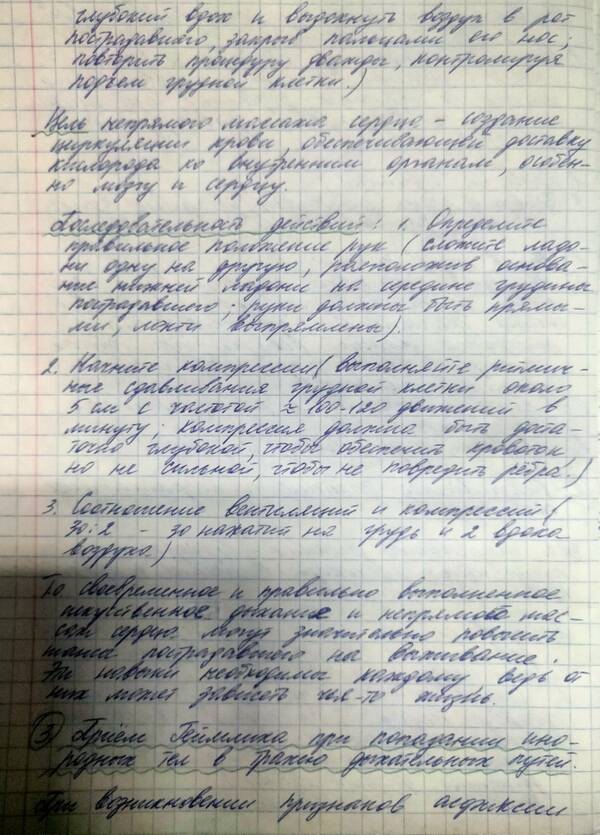 глубокий вдох и выдохнуть воздух в рот
пострадавшего закрыв пальцами его нос;
повторить процедуру дважды, контролируя
подъем грудной клетки.)
Цель непрямого массажа сердца – создание
циркуляции крови, обеспечивающей доставку
кислорода ко внутренним органам, особен-
но мозгу и сердцу.
Последовательность действий: 1. Определите
правильное положение рук (сложите ладо-
ни одну на другую, расположив основа-
ние нижней ладони на середине грудины
пострадавшего; руки должны быть прямы-
ми, локти выпрямлены).
2. Начните компрессии (выполняйте ритмич-
ные сдавливания грудной клетки около
5 см с частотой ≈ 100-120 движений в
минуту; компрессия должна быть доста-
точно глубокой, чтобы обеспечить кровоток,
но не сильной, чтобы не повредить рёбра.)
3. Соотношение вентиляций и компрессий (
30:2 – 30 нажатий на грудь и 2 вдоха
воздуха.)
своевременное и правильно выполненное
искусственное дыхание и непрямого мас-
саж сердца могут значительно повысить
шансы пострадавшего на выживание.
Эти навыки необходимы каждому ведь от
них может зависеть чья-то жизнь.
3 Приём Геймлиха при попадании ино-
родных тел в трахею дыхательных путей.
При возникновении признаков асфиксии